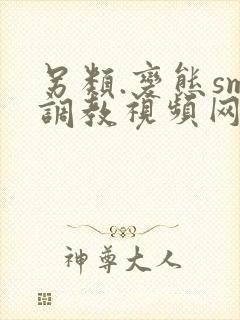 另類.变態sm
調教視頻网
神尊大人